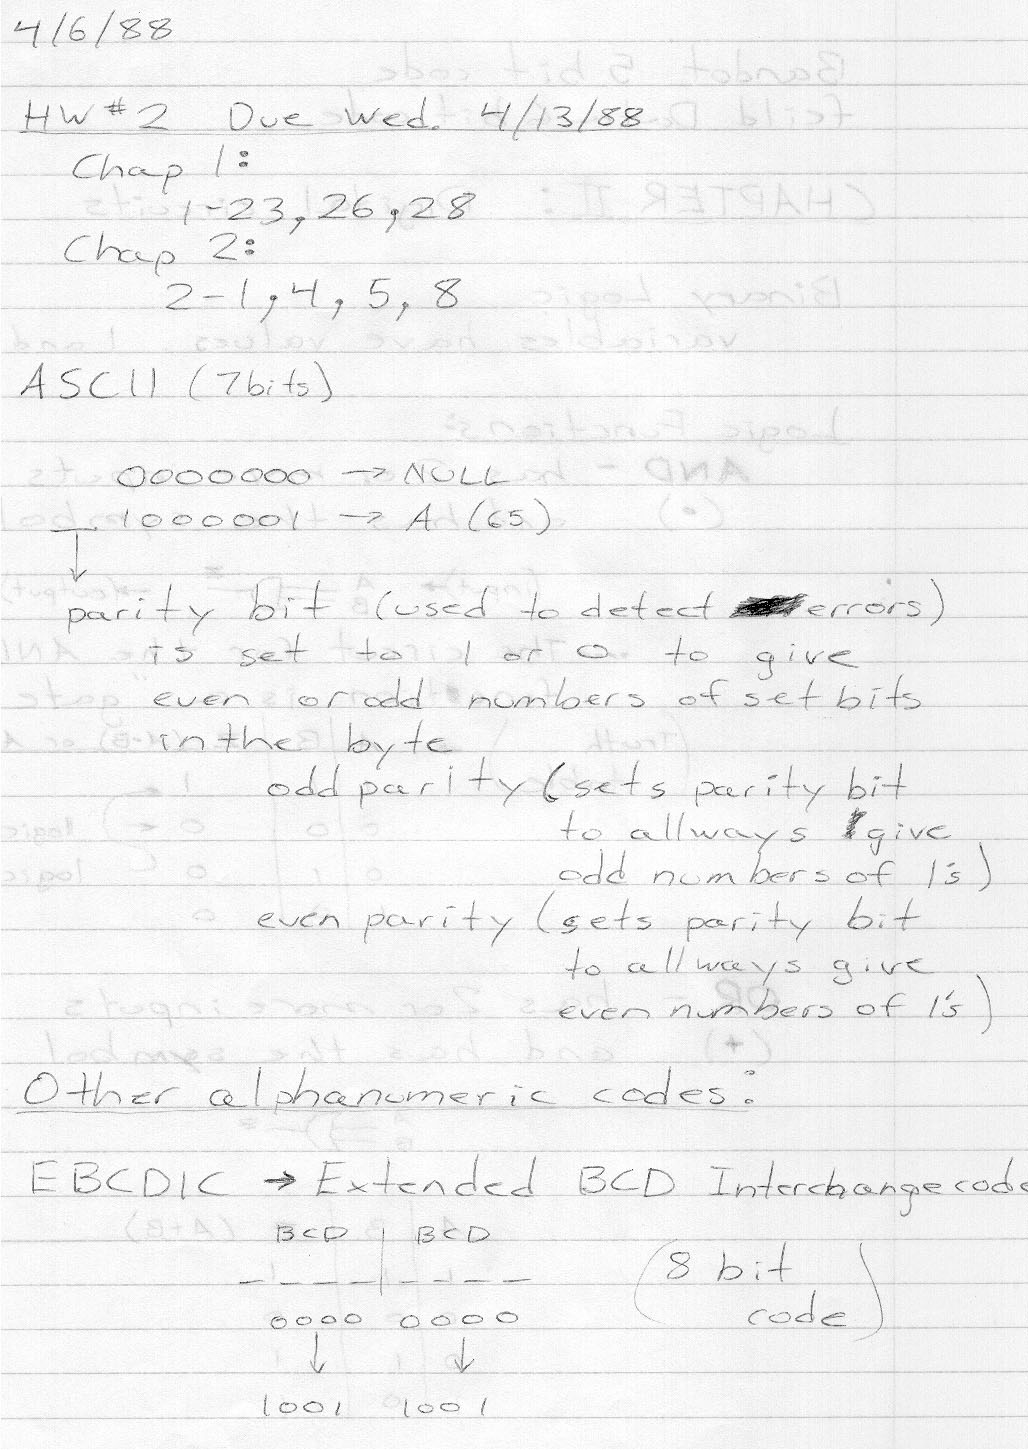 4/6/88
HW #2 Due Wed. 4/13/88
Chap 1:
1-23, 26, 28
Chap 2:
2-1, 4, 5, 8
ASCII (7bits)
0000000 → NULL
_ 1000001 → A (65)
↓
parity bit (used to detect errors)
is set to 1 or 0 to give
even or odd numbers of set bits
in the byte
odd parity (sets parity bit
to allways give
odd numbers of 1's)
even parity (sets parity bit
to allways give
even numbers of 1's)
Other alphanumeric codes:
EBCDIC → Extended BCD Interchange code
BCD | BCD
_ _ _ _ | _ _ _ _ (8 bit
0000 0000 code)
↓ ↓
1001 1001